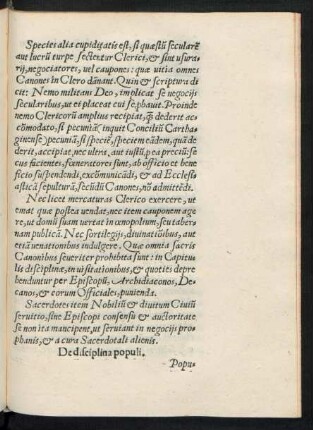 Species alia cupiditatis est, si quæstũ secularẽ
aut lucrũ turpe sectentur Clerici, & sint usura-
rij, negociatores, uel caupones: quæ uitia omnes
Canones in Clero dãnant. Quin & scriptura di
cit: Nemo militans Deo, implicat se negocijs
secularibus, ut ei placeat cui se ꝓbauit. Proinde
nemo Clericorũ amplius recipiat, ꝗ̃ dederit ac-
cõmodato, si pecuniã, inquit Concilium Cartha-
ginense, pecuniã, si speciẽ, speciem eãdem, quã de
derit, accipiat, nec ulterius, aut iustũ rei preciũ: se
cus facientes, fœneratores sunt, ab officio et bene
ficio suspendendi, excõmunicãdi, & ad Ecclesi-
asticã sepulturã, secũdũ Canones, nõ admittẽdi.
Nec licet mercaturas Clerico exercere, ut
emat quæ postea uendat, nec item cauponem age
re, ut domũ suam uertat in œnopolium, seu taber-
nam publicã. Nec sortilegijs, diuinatiõibus, aut
etiã uenationibus indulgere. Quæ omnia sacris
Canonibus seueriter prohibita sunt: in Capitu
lis disciplinæ, in uisitationibus, & quoties depre
henduntur per Episcopũ, Archidiaconos, De-
canos, & eorum Officiales, punienda.
Sacerdotes item Nobiliũ & diuitum Ciuiũ
seruitio, sine Episcopi consensu & auctoritate
se non ita mancipent, ut seruiant in negocijs pro
phanis, & a cura Sacerdotali alienis.
De disciplina populi.
Popu-